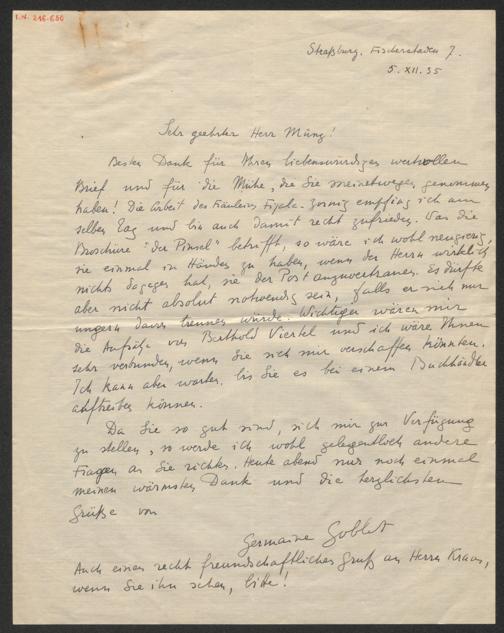 I.N. 216.650
Straßburg, Fischerstaden 7.
5. XII. 35
Sehr geehrter Herr Münz!
Besten Dank für Ihren liebenswürdigen wertvollen
Brief und für die Mühe, die Sie meinetwegen genommen
haben! Die Arbeit des Fräuleins empfing ich am
selben Tag und bin auch damit recht zufrieden. Was die
Broschüre "der Pinsel" betrifft, so wäre ich wohl neugierig,
sie einmal in Händen zu haben, wenn der Herr wirklich
nichts dagegen hat, sie der Post anzuvertrauen. Es dürfte
aber nicht absolut notwendig sein, falls er sich nur
ungern davon trennen würde. Wichtiger wären mir
die Aufsätze von Berthold Viertel und ich wäre Ihnen
sehr verbunden, wenn Sie sie mir verschaffen könnten.
Ich kann aber warten, bis Sie es bei einem Buchhändler
auftreiben können.
Da Sie so gut sind, sich mir zur Verfügung
zu stellen, so werde ich wohl gelegentlich andere
Fragen an Sie richten. Heute abend nur noch einmal
meinen wärmsten Dank und die herzlichsten
Grüße von
Germaine Goblot
Auch einen recht freundschaftlichen Gruß an Herrn Kraus,
wenn Sie ihn sehen, bitte!